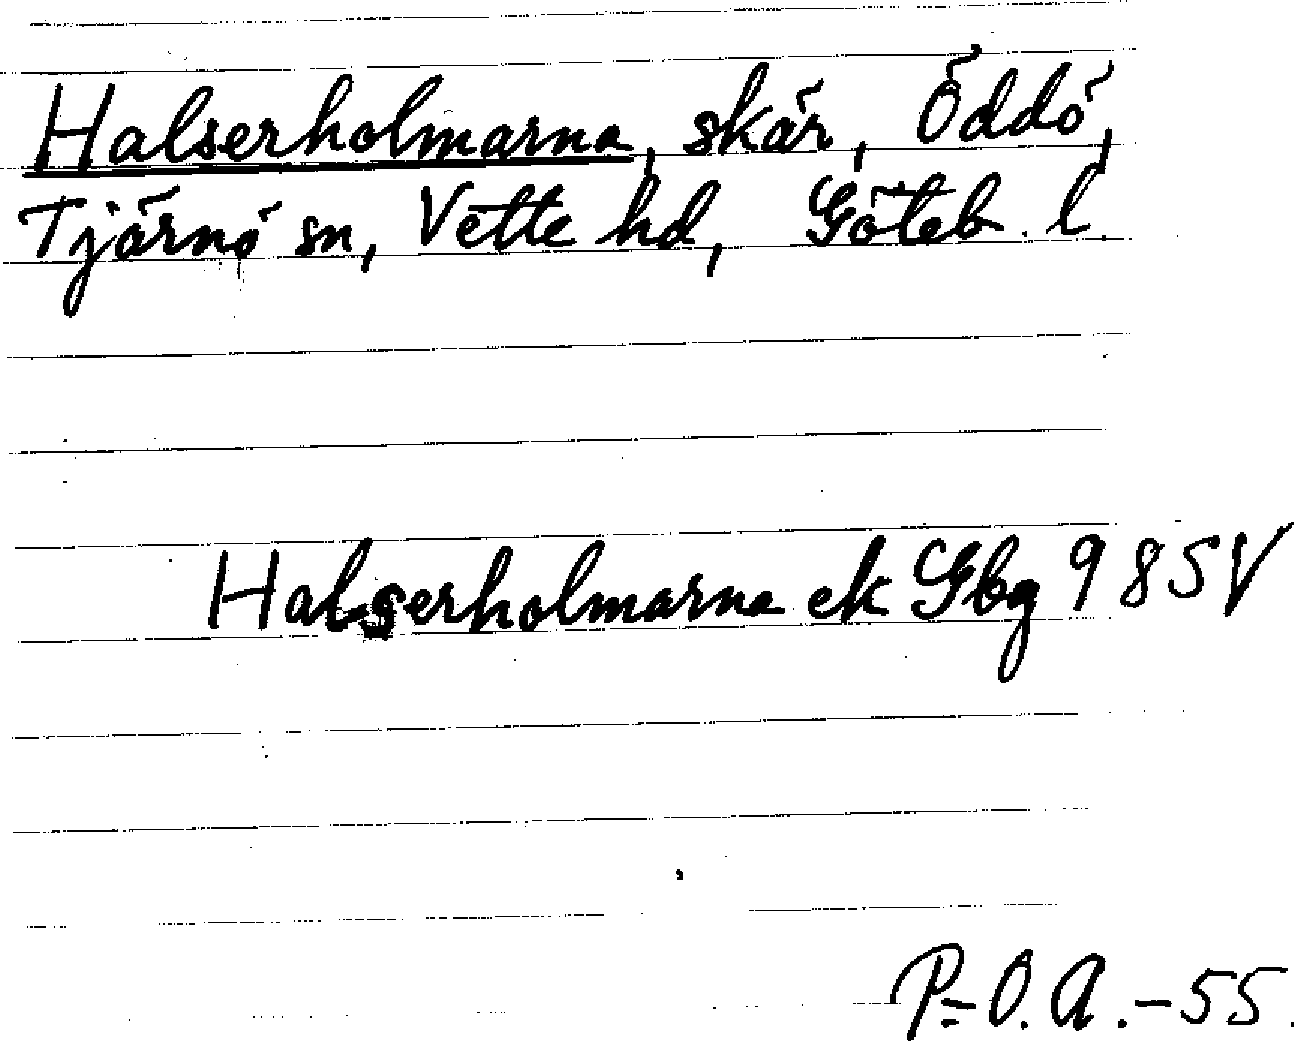 Halserholmarna, skär, Öddö,
Tjärnö sn, Vette hd, Göteb. l.
Halserholmarna ek Gbg 985V
P-O.A.-55.